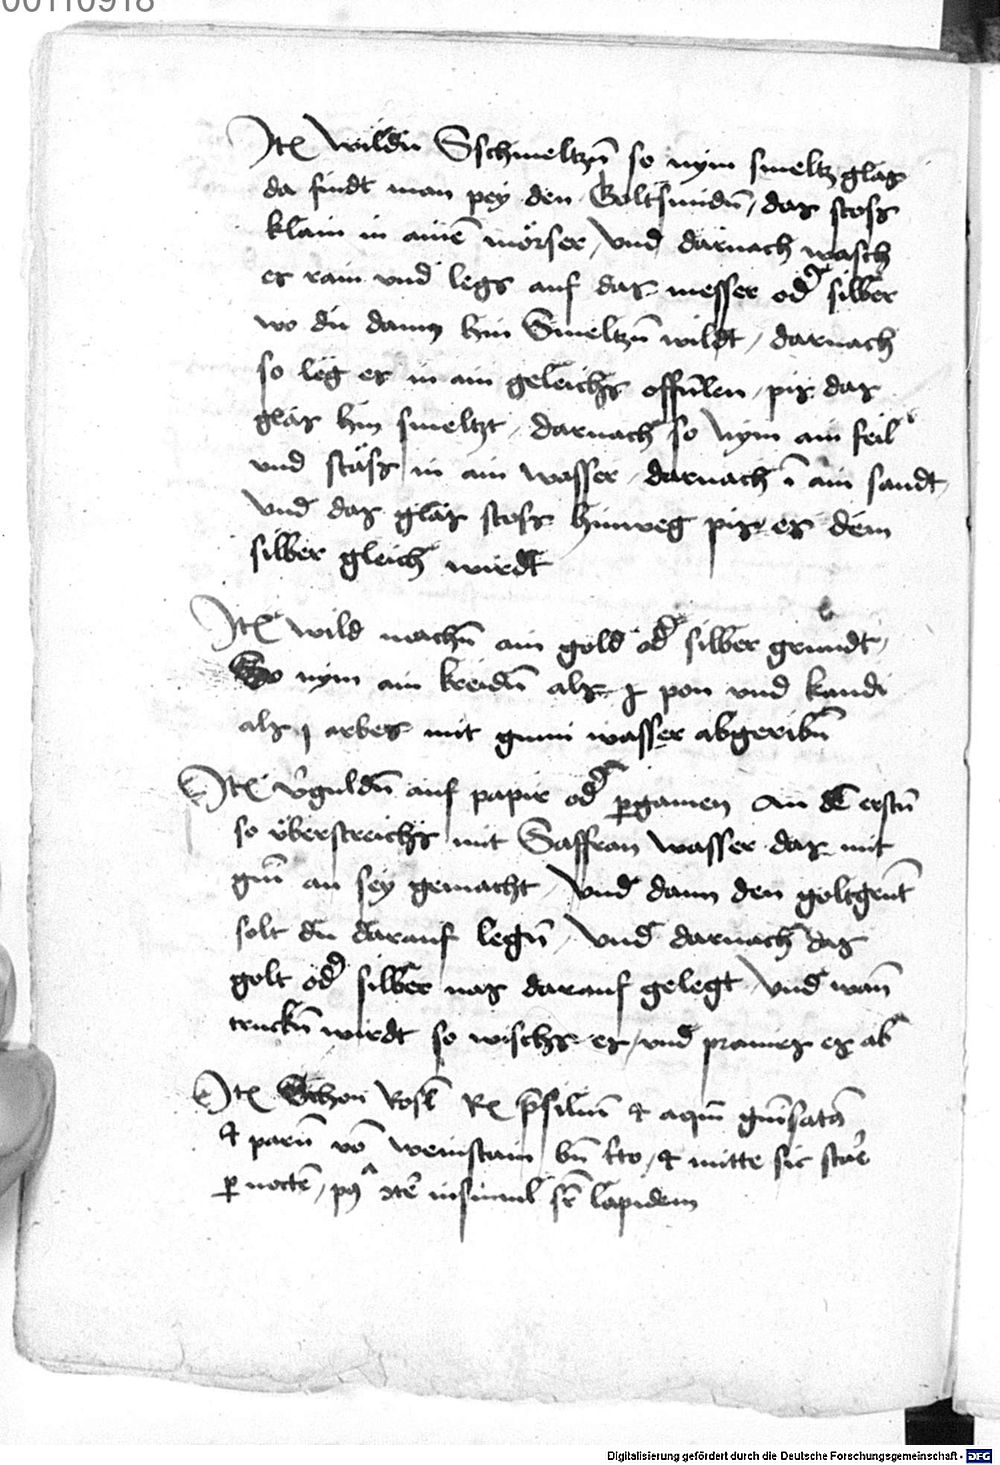 00110918
Itē wildu Sschmeltzn̄ so nym smeltz glas
da findt man pey den Goltsmidn̄ / das stoss
klain in ainē mörser / vnd darnach wasch
es rain vnd legs auf das messer od̄ silber
wo du dann hin Smeltzn̄ wildt / darnach
so leg es in ain geleichs offnlen / pis das
glas hin smeltzt / darnach so nym ain feil
vnd stass in ain wasser / darnach ī ain sandt
vnd das glas stoss hinweg pis es dem
silber gleich wirdt
Itē wild machn̄ ain gold od̄ silber grundt
So nym ain kreidn̄ als j pon vnd kandi
als j arbes mit gumi wasser abgeribn̄
Itē v̄guldn̄ auf papir od̄ pgamen An dē erstn̄
so v̈berstreichs mit Saffran wasser das mit
gūi an sey gemacht / vnd dann den goltgrūt
solt du darauf legn̄ / vnd darnach das
golt od̄ silber nas darauf gelegt / vnd wan̄
truckn̄ wirdt so wischs es / vnd pranirs es ab
Itē Schon Rosl̄ Rē p̄silium & aquā gūisatā
& parū vō weinstain / & mitte sic stare
p noctē / insimul lapidem
Digitalisierung gefördert durch die Deutsche Forschungsgemeinschaft - DFG